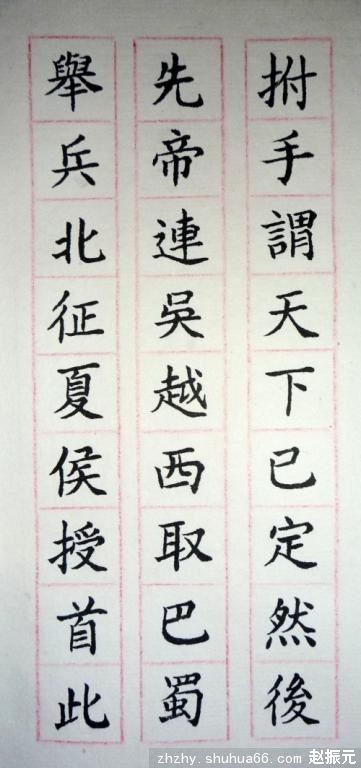 拊手謂天下已定然後
先帝連吳越西取巴蜀
舉兵北征夏侯授首此
zhzhy.shuhua66.com 赵振元